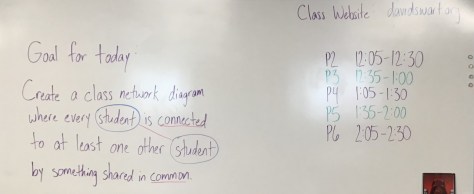 Class Website davidswart.org
Goal for today
Create a class network diagram
where every student is connected
to at least one other student
by something shared in common.
P2 12:05-12:30
P3 12:35-1:00
P4 1:05-1:30
P5 1:35-2:00
P6 2:05-2:30